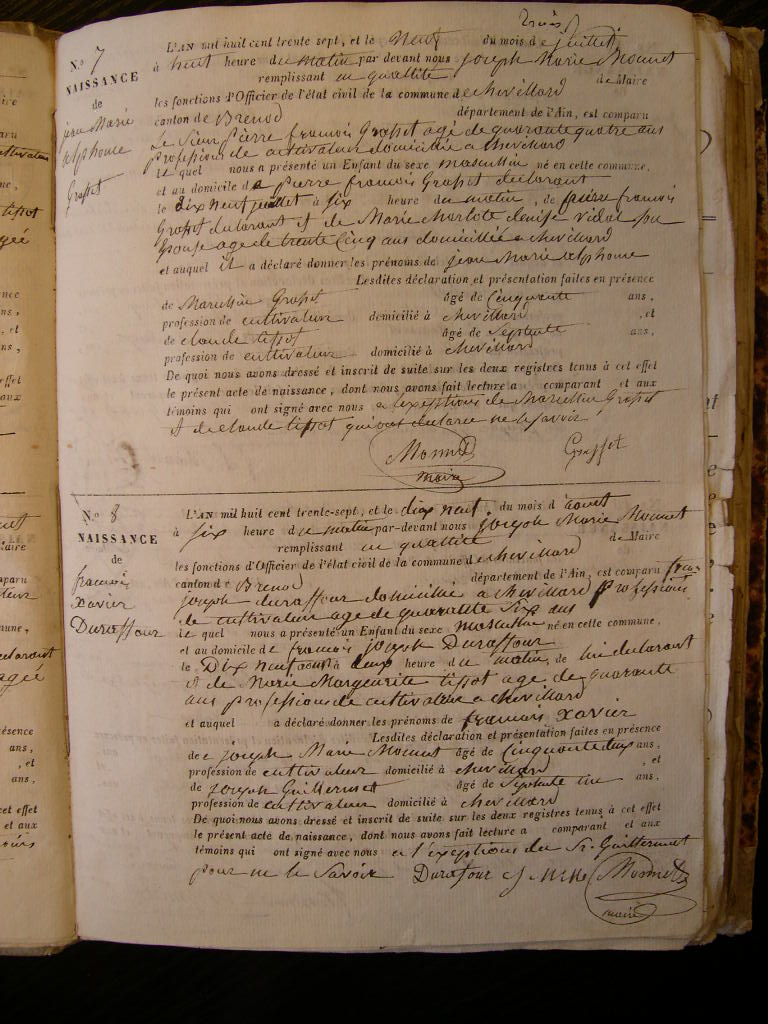 N.o 7
NAISSANCE
de
jean Marie
alphonse
Grosset
L'AN mil huit cent trente sept, et le Neuf du mois de juillet
à neuf heure du matin par devant nous joseph Marie Monnet
remplissant en quallité de Maire
les fonctions d'Officier de l'état civil de la commune de chevillard
canton de Brenod département de l'Ain, est comparu
Le Sieur pierre francois Grosset agé de quarante quatre ans
profession de cultivateur domicillié a chevillard
le quel nous a présenté un Enfant du sexe masculin né en cette commune,
et au domicile de pierre francois Grosset declarant
le dix neuf juillet à six heure du matin, de pierre francois
Grosset declarant et de Marie charlote denise vidal son
Epouse age de trente Cinq ans domicilliée a chevillard
et auquel il a déclaré donner les prénoms de jean Marie alphonse
Lesdites déclaration et présentation faites en présence
de Marcellin Grosset âgé de Cinquante ans,
profession de cultivateur domicilié à chevillard , et
de claude tissot âgé de Septente ans,
profession de cultivateur domicilié à chevillard
De quoi nous avons dressé et inscrit de suite sur les deux registres tenus à cet effet
le présent acte de naissance, dont nous avons fait lecture a comparant et aux
témoins qui ont signé avec nous a lexceptions de Marcellin Grosset
et de claude tissot qui ont declare ne le savoir
Monnet Grosset
maire
N.o 8
NAISSANCE
de
francois
xavier
Duraffour
L'AN mil huit cent trente-sept, et le dix neuf du mois d'aout
à six heure du matin par-devant nous joseph Marie Monnet
remplissant en quallité de Maire
les fonctions d'Officier de l'état civil de la commune de chevillard
canton de Brenod département de l'Ain, est comparu fran-
joseph duraffour domicillié a chevillard profession
de cultivateur age de quarante Six ans
le quel nous a présenté un Enfant du sexe masculin né en cette commune,
et au domicile de francois joseph Duraffour
le Dix neuf aout à deux heure du matin, de lui declarant
et de Marie Marguerite tissot age de quarante
ans professions de cultivateur a chevillard
et auquel a déclaré donner les prénoms de francois xavier
Lesdites déclaration et présentation faites en présence
de joseph Marie Monnet âgé de Cinquante deux ans,
profession de cultivateur domicilié à chevillard , et
de joseph Guillermet âgé de Septente un ans.
profession de cultivateur domicilié à chevillard
De quoi nous avons dressé et inscrit de suite sur les deux registres tenus à cet effet
le présent acte de naissance, dont nous avons fait lecture a comparant et aux
témoins qui ont signé avec nous a l'exceptions du Sr. Guillermet
pour ne le Savoir Durafour Monnet
maire